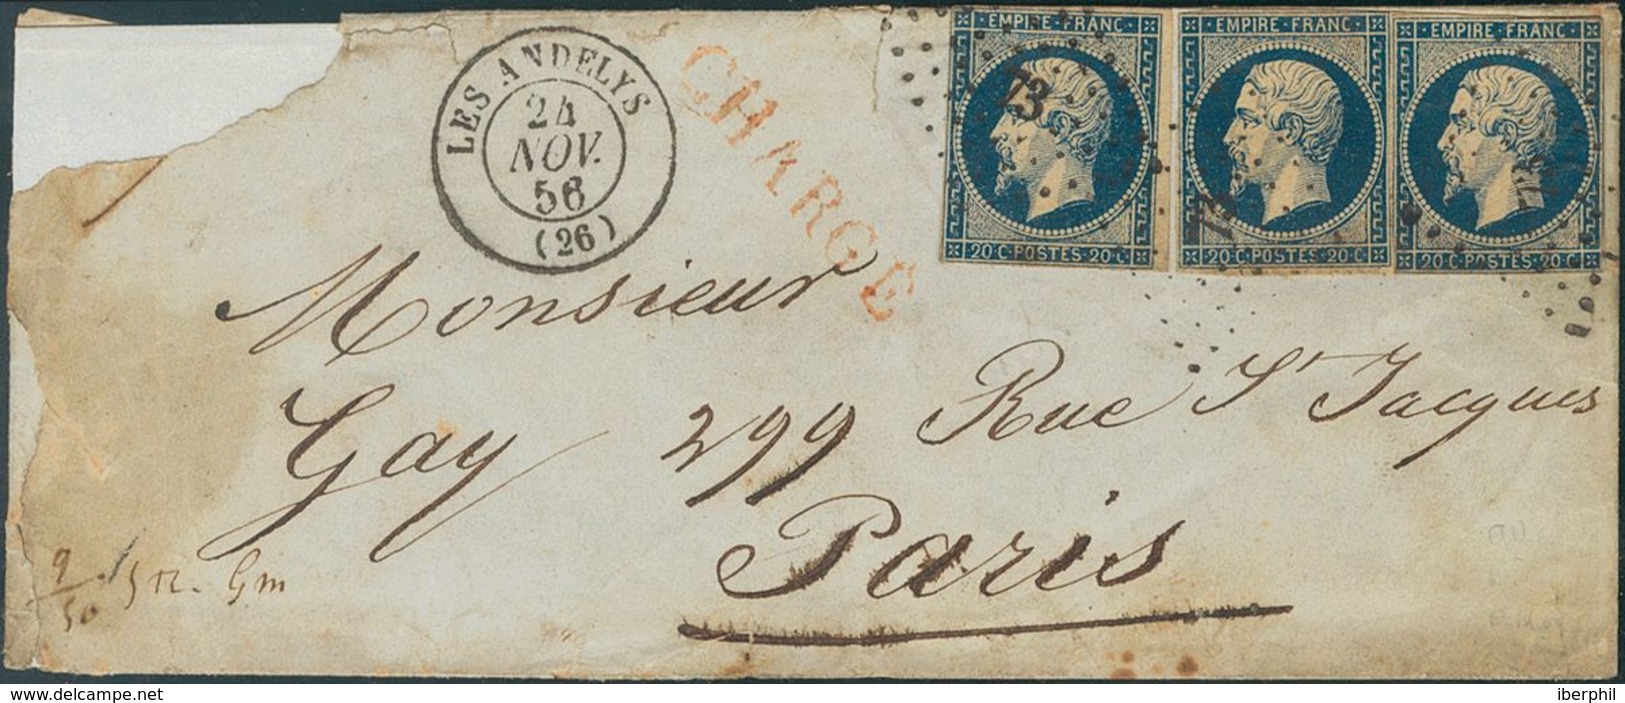 LES ANDELYS
24
NOV.
56
(26)
CHARGE
EMPIRE · FRANC ·
20 · C · POSTES · 20 · C
73
EMPIRE · FRANC ·
20 · C · POSTES · 20 · C
73
EMPIRE · FRANC ·
20 · C · POSTES · 20 · C
73
Monsieur
Gay 299 Rue St Jacques
Paris
9
50
www.delcampe.net
iberphil